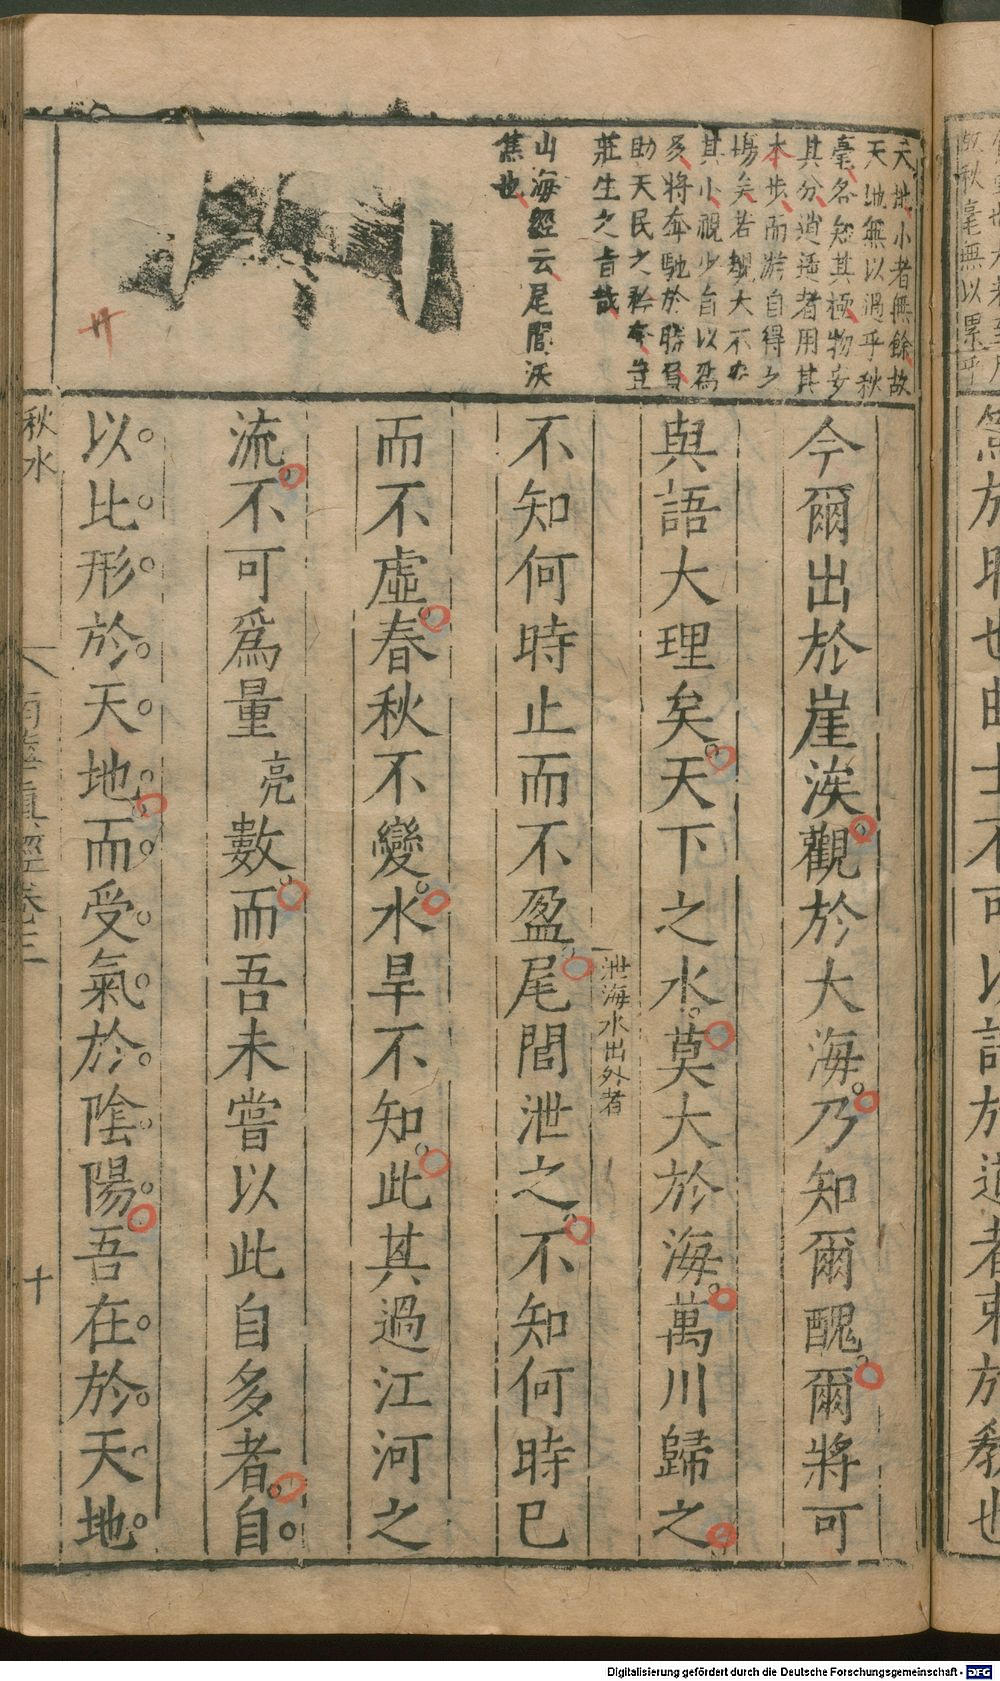 篤於時也曲士不可以語於道者束於教也
故秋毫無以累乎
天地小者無餘故
天地無以過乎秋
毫各知其極物安
其分逍遙者用其
本步而游自得之
場矣若覩大不安
其小視少自以爲
多將奔馳於勝負
助天民之矜夸豈
莊生之旨哉
山海經云尾閭沃
焦也
今爾出於崖涘觀於大海乃知爾醜爾將可
與語大理矣天下之水莫大於海萬川歸之
不知何時止而不盈尾閭泄之不知何時已
泄海水出外者
而不虛春秋不變水旱不知此其過江河之
流不可爲量亮數而吾未嘗以此自多者自
以比形於天地而受氣於陰陽吾在於天地
秋水
南華真經卷三
十
Digitalisierung gefördert durch die Deutsche Forschungsgemeinschaft - DFG